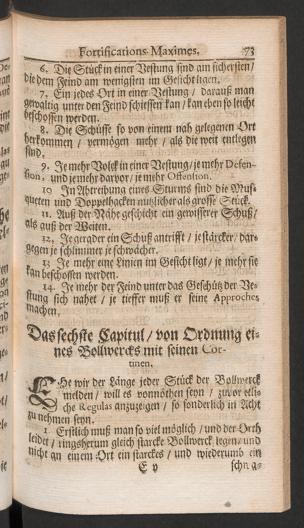 Fortifications-Maximes. 73
6. Die Stück in einer Vestung sind am sichersten/
die dem Feind am wenigsten im Gesicht ligen.
7. Ein jedes Ort in einer Vestung / darauß man
gewaltig unter den Feind schiessen kan / kan eben so leicht
beschossen werden.
8. Die Schüsse so von einem nah gelegenen Ort
herkommen / vermögen mehr / als die weit entlegen
sind.
9. Je mehr Volck in einer Vestung/je mehr Defen-
sion, und je mehr darvor / je mehr Offension.
10 In Abtreibung eines Sturms sind die Muß-
queten und Doppelhacken nützlicher als grosse Stück.
11. Auß der Nähe geschicht ein gewisserer Schuß/
als auß der Weiten.
12. Je gerader ein Schuß antrifft / je stärcker/ dar-
gegen je schlimmer je schwächer.
13 Je mehr eine Linien im Gesicht ligt / je mehr sie
kan beschossen werden.
14. Je mehr der Feind unter das Geschütz der Ve-
stung sich nahet / je tieffer muß er seine Approches
machen.
Das sechste Capitul / von Ordnung ei-
nes Bollwercks mit seinen Cor-
tinen.
EHe wir der Länge jeder Stück der Bollwerck
melden / will es vonnöthen seyn / zuvor etli-
che Regulas anzuzeigen / so sonderlich in Acht
zu nehmen seyn.
1. Erstlich muß man so viel möglich / und der Orth
leidet / ringsherum gleich starcke Bollwerck legen/ und
nicht an einem Ort ein starckes / und wiederumb ein
E v schwa-